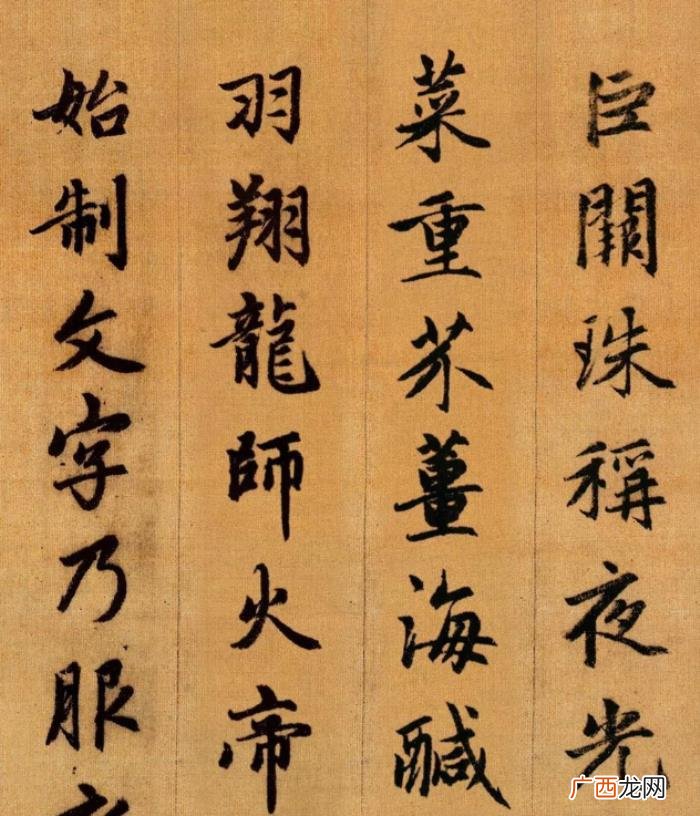 巨闕珠稱夜光
菜重芥薑海醎
羽翔龍師火帝
始制文字乃服衣
广西龙网